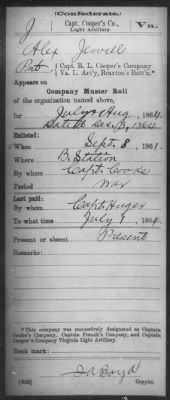 (Confederate.)
J Capt. Cooper's Co., Va.
Light Artillery.
Alex Jewell
Pvt., { Capt. R. L. Cooper's Company
Va. L. Art'y, Braxton's Batt'n.*
Appears on
Company Muster Roll
of the organization named above,
for July & Aug, 1864.
Enlisted:
When Sept. 8, 1861.
Where B. Station
By whom Capt. Cooke
Period War
Last paid:
By whom Capt. Huger
To what time July 1, 1864.
Present or absent Present
Remarks:
* This company was successively designated as Captain
Cooke's Company, Captain French's Company, and Captain
Cooper's Company Virginia Light Artillery.
Book mark:
(642) Copyist.